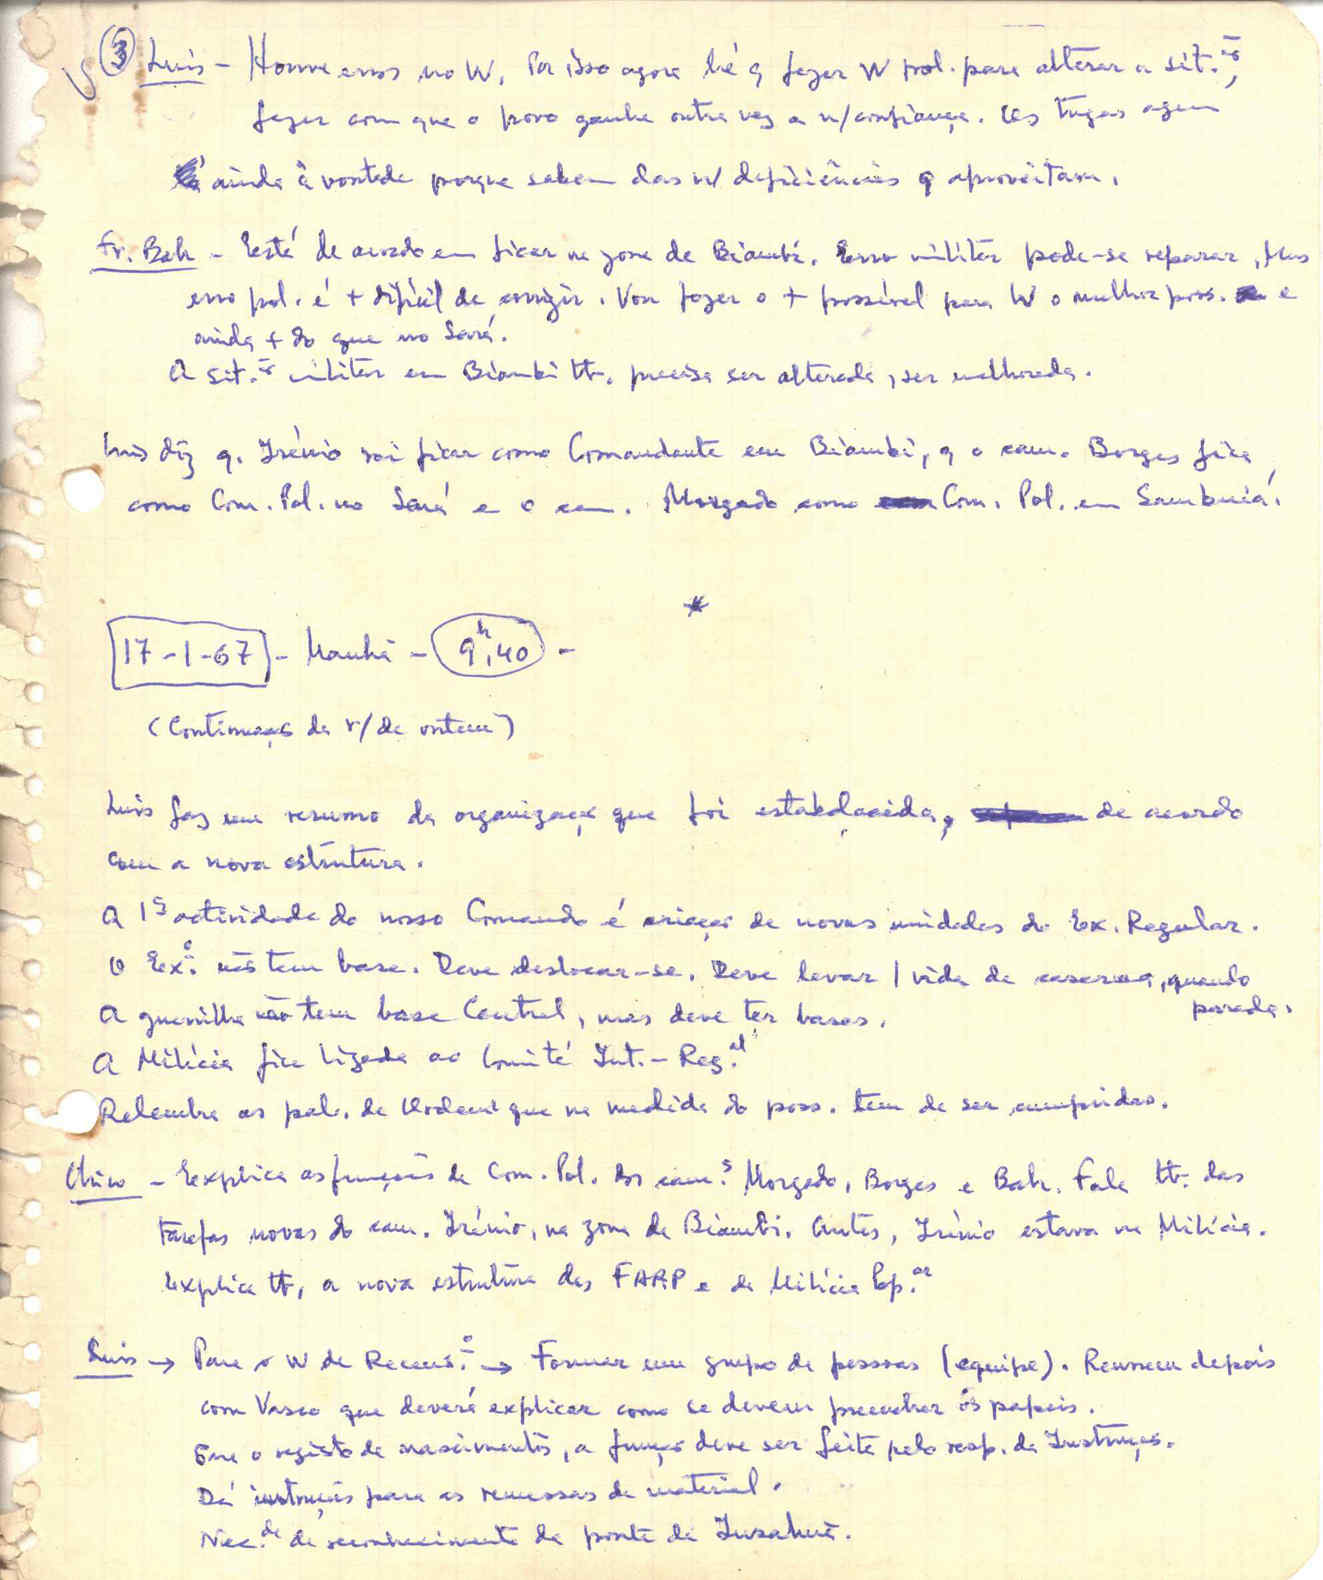 ③ Luís - Houve erros no W. Por isso agora há q fazer W pol. para alterar a sit.ão,
fazer com que o povo ganhe outra vez a n/confiança. Os tugas agem
ainda à vontade porque sabem das n/ deficiências q aproveitam.
Fr. Bah - Está de acordo em ficar na zona de Biambi. Erro militar pode-se reparar, mas
erro pol. é + difícil de corrigir. Vou fazer o + possível para W o melhor poss. e
ainda + do que no Sará.
A sit.ão militar em Biambi tb. precisa ser alterada, ser melhorada.
Luís diz q. Irénio vai ficar como Comandante em Biambi, q o cam. Borges fica
como Com. Pol. no Sará e o cam. Morgado como Com. Pol. em Sambuiá.
*
17-1-67 - Manhã - 9h,40 -
(Continuação da r/de ontem)
Luís faz um resumo da organização que foi estabelecida, de acordo
com a nova estrutura.
A 1ª actividade do nosso Comando é criação de novas unidades do Ex. Regular.
O Ex.o não tem base. Deve deslocar-se. Deve levar 1 vida de caserna, quando
parada.
A guerrilha não tem base Central, mas deve ter bases.
A Milícia fica ligada ao Comité Int.-Reg.al
Relembra as pal. de Ordem que na medida do poss. tem de ser cumpridas.
Chico - Explica as funções de Com. Pol. dos cam.s Morgado, Borges e Bah. Fala tb. das
tarefas novas do cam. Irénio, na zona de Biambi. Antes, Irénio estava na Milícia.
Explica tb, a nova estrutura das FARP e da Milícia Pop.ar
Luís → Para o W de Recens.o → Formar um grupo de pessoas (equipe). Reunem depois
com Vasco que deverá explicar como se devem preencher os papeis.
o registo de nascimentos, a função deve ser feita pelo resp. da Instrução.
Dá instruções para as remessas de material.
Nec.de de reconhecimento da ponte de